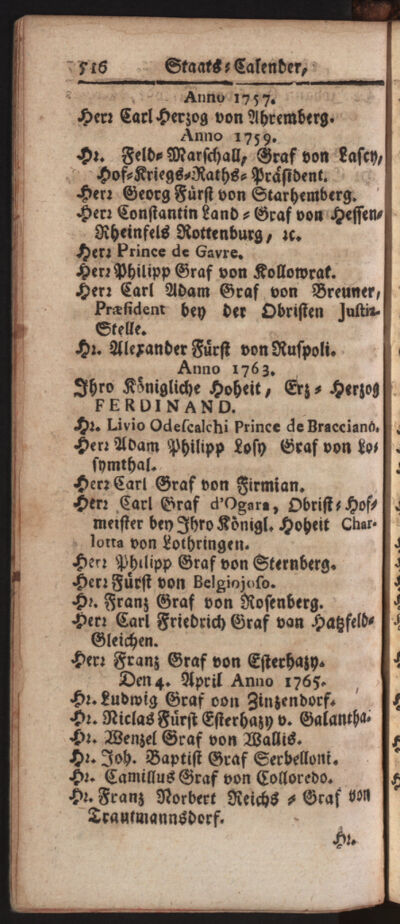 516 Staats-Calender,
Anno 1757.
Herr Carl Herzog von Ahremberg.
Anno 1759.
Hr. Feld-Marschall, Graf von Lascy,
Hof-Kriegs-Raths-Präsident.
Herr Georg Fürst von Starhemberg.
Herr Constantin Land-Graf von Hessen-
Rheinfels Rottenburg, ꝛc.
Herr Prince de Gavre.
Herr Philipp Graf von Kollowrat.
Herr Carl Adam Graf von Breuner,
Præsident bey der Obristen Justiz-
Stelle.
Hr. Alexander Fürst von Ruspoli.
Anno 1763.
Ihro Königliche Hoheit, Erz-Herzog
FERDINAND.
Hr. Livio Odescalchi Prince de Bracciano.
Herr Adam Philipp Losy Graf von Lo-
symthal.
Herr Carl Graf von Firmian.
Herr Carl Graf d'Ogara, Obrist-Hof-
meister bey Ihro Königl. Hoheit Char-
lotta von Lothringen.
Herr Philipp Graf von Sternberg.
Herr Fürst von Belgiojoso.
Hr. Franz Graf von Rosenberg.
Herr Carl Friedrich Graf von Hatzfeld-
Gleichen.
Herr Franz Graf von Esterhazy.
Den 4. April Anno 1765.
Hr. Ludwig Graf von Zinzendorf.
Hr. Niclas Fürst Esterhazy v. Galantha.
Hr. Wenzel Graf von Wallis.
Hr. Joh. Baptist Graf Serbelloni.
Hr. Camillus Graf von Colloredo.
Hr. Franz Norbert Reichs-Graf von
Trautmannsdorf.
Hr.